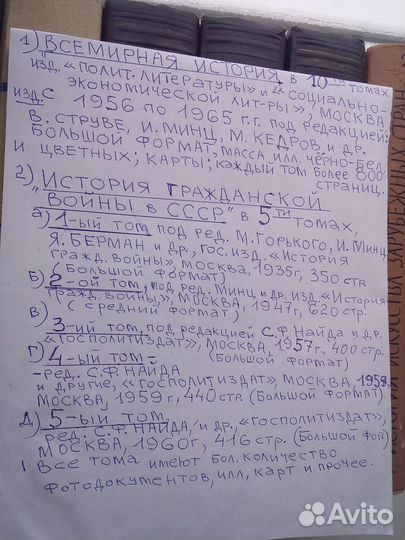 1) ВСЕМИРНАЯ ИСТОРИЯ, в 10ти томах
изд. «ПОЛИТ. ЛИТЕРАТУРЫ» и «СОЦИАЛЬНО-
ЭКОНОМИЧЕСКОЙ ЛИТ-РЫ», МОСКВА,
изд. с 1956 по 1965 г.г. под редакцией:
В. СТРУВЕ, И. МИНЦ, М. КЕДРОВ и др.
БОЛЬШОЙ ФОРМАТ, МАССА ИЛЛ. ЧЕРНО-БЕЛ.
И ЦВЕТНЫХ; КАРТЫ; каждый том более 800
СТРАНИЦ.
2) "ИСТОРИЯ ГРАЖДАНСКОЙ
ВОЙНЫ в СССР" в 5ти томах,
а) 1-ый том под ред. М. Горького, И. Минц,
Я. БЕРМАН и др., гос. изд. «История
гражд. войны», Москва, 1935г, 350 стр
(Большой формат)
Б) 2-ой том, под ред. Минц и др. изд. «История
гражд. войны», Москва, 1947г, 620 стр.
(средний формат)
В) 3-ий том, под редакцией С.Ф. Найда и др.
«Госполитиздат», Москва, 1957г., 400 стр.
(Большой формат)
Г) 4-ый том -
-ред. С.Ф. НАЙДА
и другие, «Госполитиздат», Москва, 1959.
МОСКВА, 1959 г., 440 стр (Большой формат)
Д) 5-ый том,
ред. С.Ф. НАЙДА, и др., «Госполитиздат»,
МОСКВА, 1960г, 416 стр. (Большой фор)
Все тома имеют бол. количество
фотодокументов, илл, карт и прочее.
ИСКУССТВА ЗАРУБЕЖНЫХ СТРАН
Avito